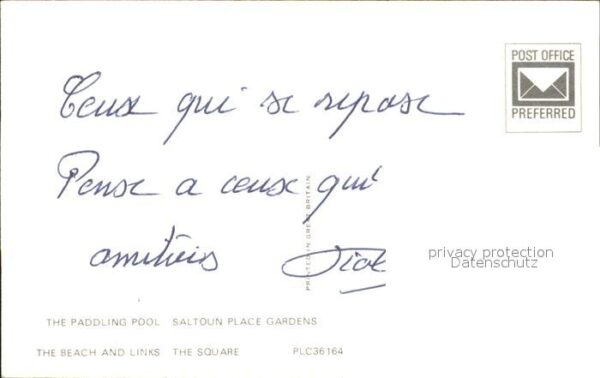 POST OFFICE
PREFERRED
Ceux qui se repose
Pense a ceux qui
amitiés
PRINTED IN GREAT BRITAIN
privacy protection
Datenschutz
THE PADDLING POOL SALTOUN PLACE GARDENS
THE BEACH AND LINKS THE SQUARE PLC36164